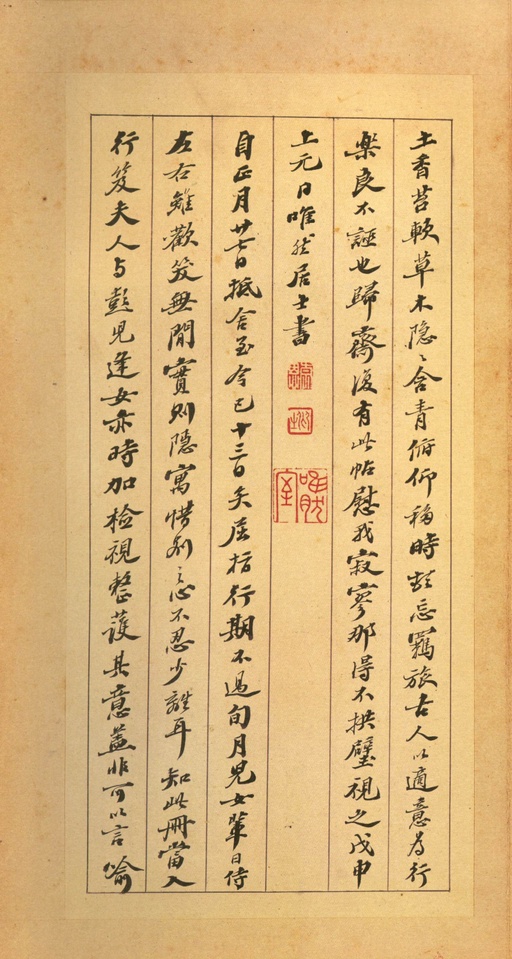 土香苔軟草木隐〻含青俯仰移時頗忘羈旅古人以適意为行
樂良不誣也歸齋復有此帖慰我寂寥那得不拱璧視之戊申
上元日唯然居士書
自正月廿七日抵舍至今已十三日矣屈指行期不過旬月兒女輩日侍
左右雖歡笑無間實則隱寓惜別之心不忍少離耳知此冊當入
行笈夫人与彭兒逢女亦時加檢視整護其意蓋非可以言喻